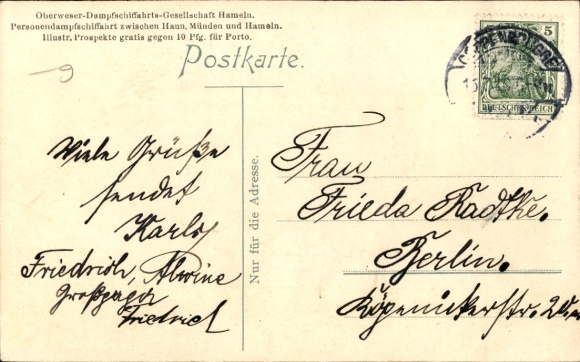 Oberweser-Dampfschiffahrts-Gesellschaft Hameln.
Personendampfschiffahrt zwischen Hann. Münden und Hameln.
Illustr. Prospekte gratis gegen 10 Pfg. für Porto.
Postkarte.
5
DEUTSCHES REICH
9
Viele Grüße
sendet
Karlos
Friedrich, Alwine
Großpapa
Friedrich
Nur für die Adresse.
Frau
Frieda Radtke.
Berlin.
Köpenickerstr.